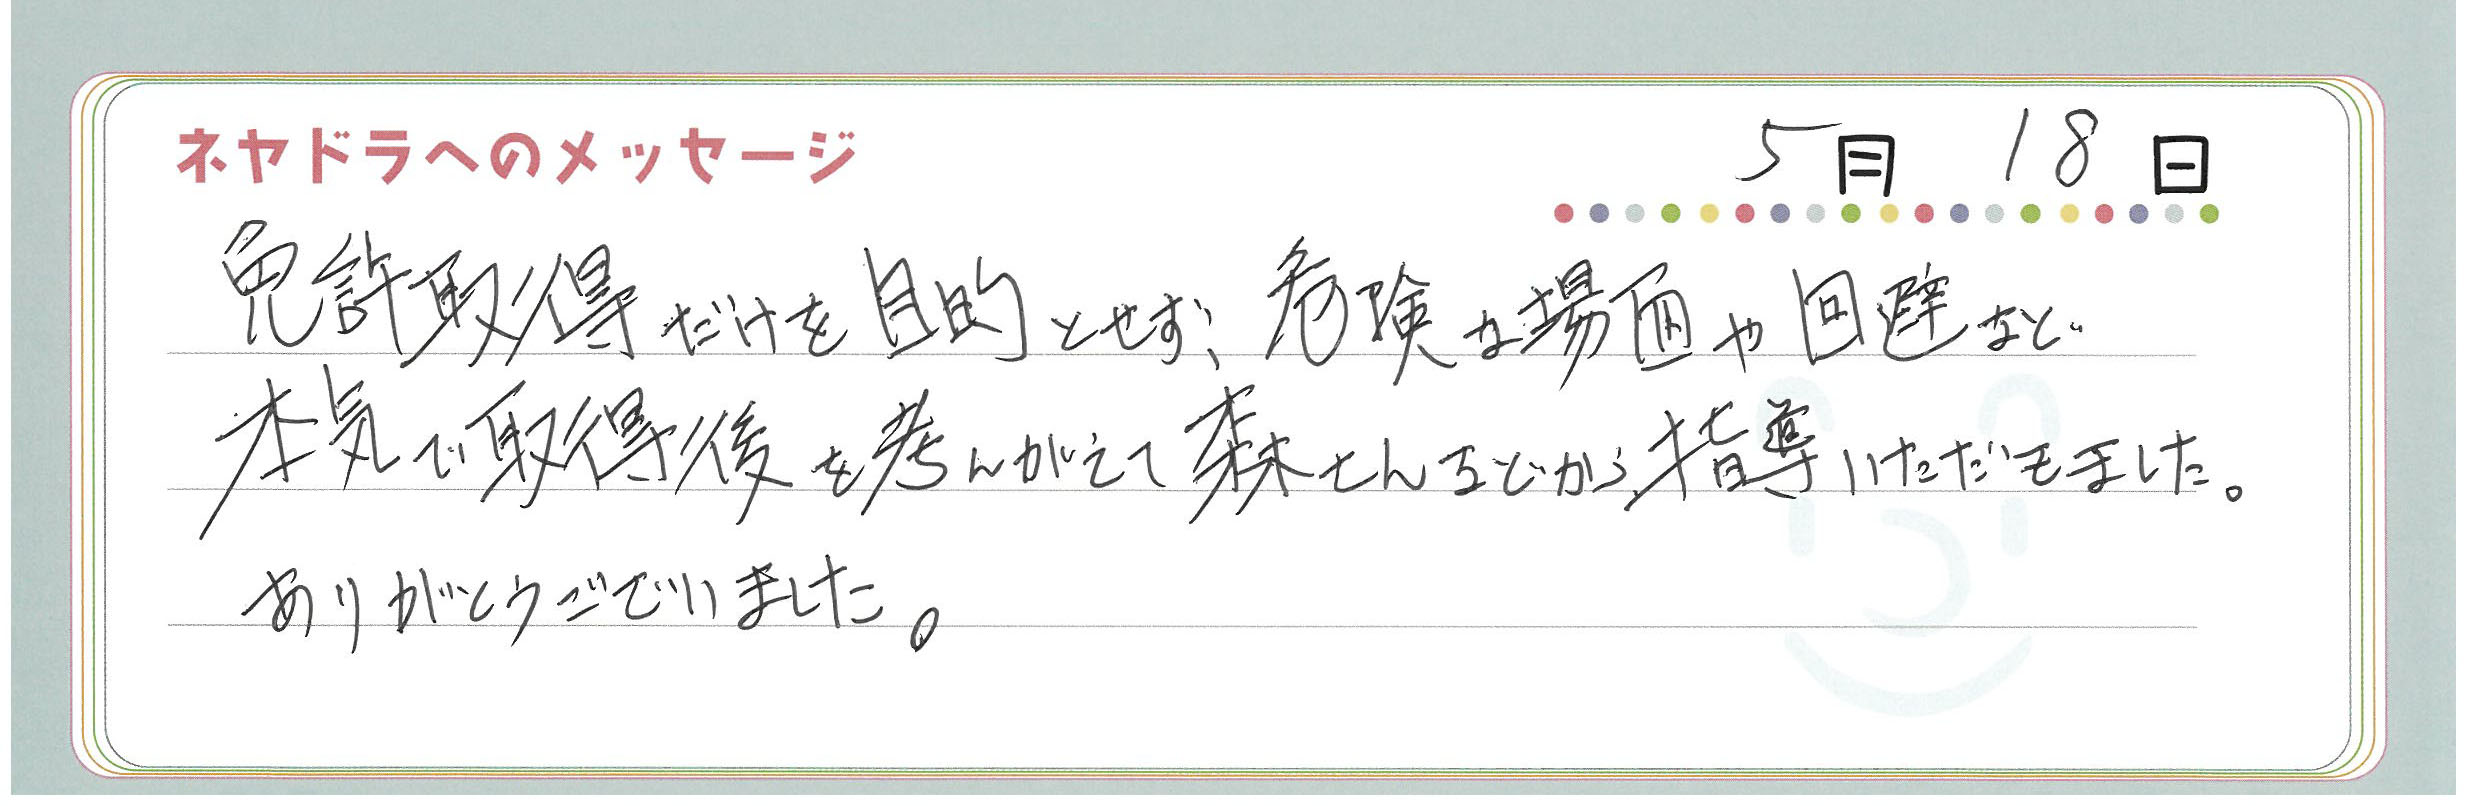 ネヤドラへのメッセージ
5月 18日
免許取得だけを目的とせず、危険な場面や回避など
本気で取得後を考んがえて森さんなどから指導いただきました。
ありがとうございました。